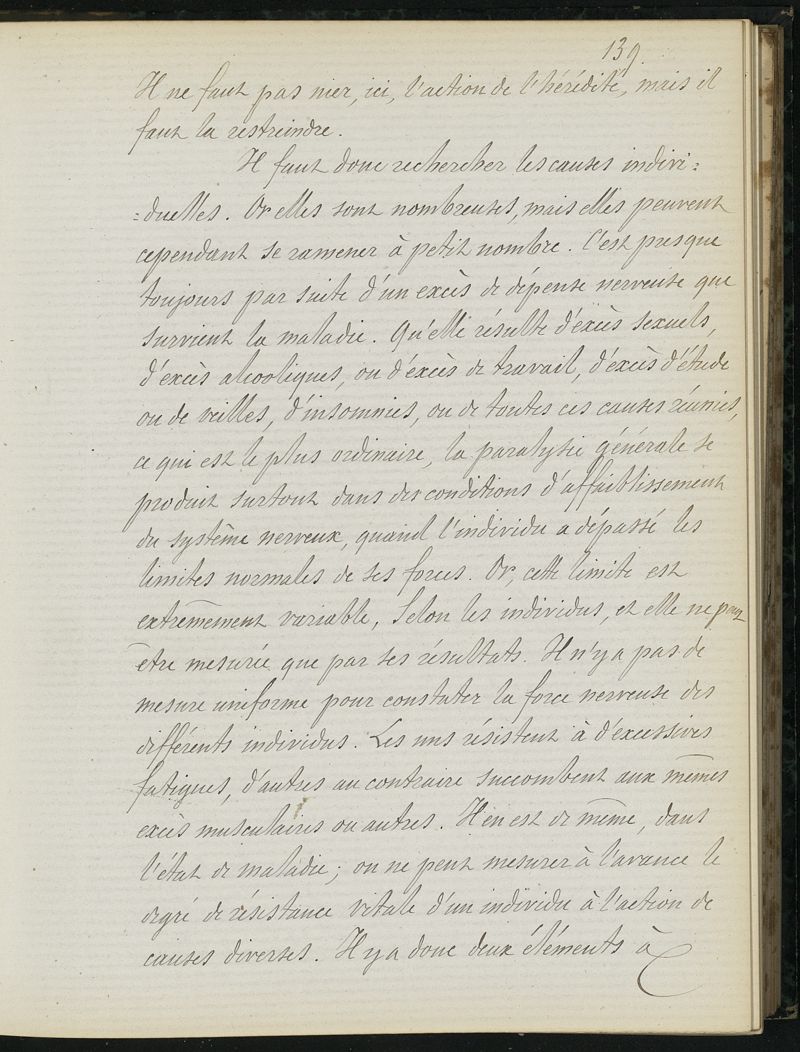 139.
Il ne faut pas nier, ici, l'action de l'hérédité, mais il
faut la restreindre.
Il faut donc rechercher les causes indivi=
=duelles. Or elles sont nombreuses, mais elles peuvent
cependant se ramener à petit nombre. C'est presque
toujours par suite d'un excès de dépense nerveuse que
survient la maladie. Qu'elle résulte d'excès sexuels,
d'excès alcooliques, ou d'excès de travail, d'excès d'étude
ou de veilles, d'insomnies, ou de toutes ces causes réunies,
ce qui est le plus ordinaire, la paralysie générale se
produit surtout dans des conditions d'affaiblissement
du système nerveux, quand l'individu a dépassé les
limites normales de ses forces. Or, cette limite est
extrêmement variable, selon les individus, et elle ne peut
être mesurée que par ses résultats. Il n'y a pas de
mesure uniforme pour constater la force nerveuse des
différents individus. Les uns résistent à d'excessives
fatigues, d'autres au contraire succombent aux mêmes
excès musculaires ou autres. Il en est de même, dans
l'état de maladie; on ne peut mesurer à l'avance le
degré de résistance vitale d'un individu à l'action de
causes diverses. Il y a donc deux éléments à